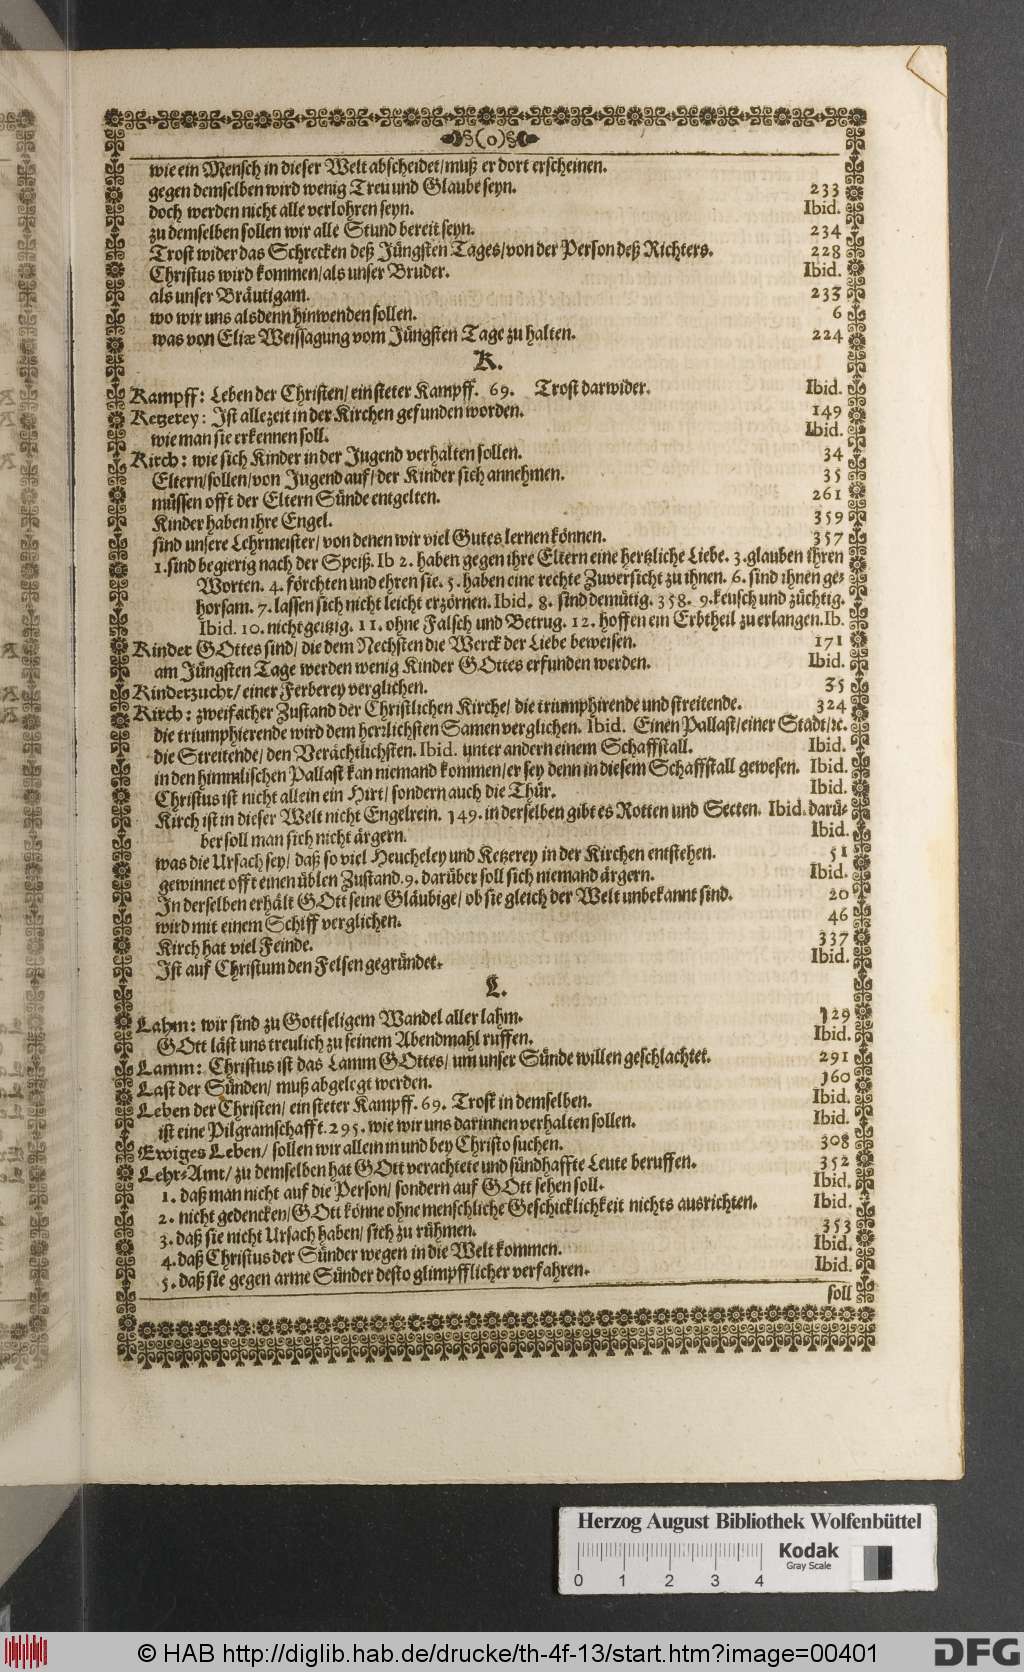 §(o)§
wie ein Mensch in dieser Welt abscheidet/muß er dort erscheinen.
gegen demselben wird wenig Treu und Glaube seyn. 233
doch werden nicht alle verlohren seyn. Ibid.
zu demselben sollen wir alle Stund bereit seyn. 234
Trost wider das Schrecken deß Jüngsten Tages/von der Person deß Richters. 228
Christus wird kommen/als unser Bruder. Ibid.
als unser Bräutigam. 233
wo wir uns alsdenn hinwenden sollen. 6
was von Eliæ Weissagung vom Jüngsten Tage zu halten. 224
K.
Kampff: Leben der Christen/ ein steter Kampff. 69. Trost darwider. Ibid.
Ketzerey: Ist allezeit in der Kirchen gefunden worden. 149
wie man sie erkennen soll. Ibid.
Kirch: wie sich Kinder in der Jugend verhalten sollen. 34
Eltern/sollen/von Jugend auf/der Kinder sich annehmen. 35
müssen offt der Eltern Sünde entgelten. 261
Kinder haben ihre Engel. 359
sind unsere Lehrmeister/ von denen wir viel Gutes lernen können. 357
1.sind begierig nach der Speiß. Ib 2. haben gegen ihre Eltern eine hertzliche Liebe. 3.glauben ihren
Worten. 4. förchten und ehren sie. 5. haben eine rechte Zuversicht zu ihnen. 6. sind ihnen ge⸗
horsam. 7. lassen sich nicht leicht erzörnen. Ibid. 8. sind demütig. 358. 9.keusch und züchtig.
Ibid. 10. nicht geitzig. 11. ohne Falsch und Betrug. 12. hoffen ein Erbtheil zu erlangen. Ib.
Kinder GOttes sind/ die dem Nechsten die Werck der Liebe beweisen. 171
am Jüngsten Tage werden wenig Kinder GOttes erfunden werden. Ibid.
Kinderzucht/ einer Ferberey verglichen. 35
Kirch: zweifacher Zustand der Christlichen Kirche/ die triumphirende und streitende. 324
die triumphierende wird dem herrlichsten Samen verglichen. Ibid. Einen Pallast/einer Stadt/ꝛc.
die Streitende/ den Verächtlichsten. Ibid. unter andern einem Schaffstall. Ibid.
in den himmlischen Pallast kan niemand kommen/er sey denn in diesem Schaffstall gewesen. Ibid.
Christus ist nicht allein ein Hirt/ sondern auch die Thür. Ibid.
Kirch ist in dieser Welt nicht Engelrein. 149. in derselben gibt es Rotten und Secten. Ibid. darü⸗
ber soll man sich nicht ärgern. Ibid.
was die Ursach sey/ daß so viel Heucheley und Ketzerey in der Kirchen entstehen. 51
gewinnet offt einen üblen Zustand. 9. darüber soll sich niemand ärgern. Ibid.
In derselben erhält GOtt seine Gläubige/ ob sie gleich der Welt unbekannt sind. 20
wird mit einem Schiff verglichen. 46
Kirch hat viel Feinde. 337
Ist auf Christum den Felsen gegründet. Ibid.
L.
Lahm: wir sind zu Gottseligem Wandel aller lahm. 129
GOtt läst uns treulich zu seinem Abendmahl ruffen. Ibid.
Lamm: Christus ist das Lamm GOttes/ um unser Sünde willen geschlachtet. 291
Last der Sünden/ muß abgelegt werden. 160
Leben der Christen/ ein steter Kampff. 69. Trost in demselben. Ibid.
ist eine Pilgramschafft. 295. wie wir uns darinnen verhalten sollen. Ibid.
Ewiges Leben/ sollen wir allein in und bey Christo suchen. 308
Lehr⸗Amt/ zu demselben hat GOtt verachtete und sündhaffte Leute beruffen. 352
1. daß man nicht auf die Person/ sondern auf GOtt sehen soll. Ibid.
2. nicht gedencken/GOtt könne ohne menschliche Geschicklichkeit nichts ausrichten. Ibid.
3. daß sie nicht Ursach haben/ sich zu rühmen. 353
4. daß Christus der Sünder wegen in die Welt kommen. Ibid.
5. daß sie gegen arme Sünder desto glimpfflicher verfahren. Ibid.
soll
Herzog August Bibliothek Wolfenbüttel
Kodak
Gray Scale
0 1 2 3 4
© HAB http://diglib.hab.de/drucke/th-4f-13/start.htm?image=00401
DFG